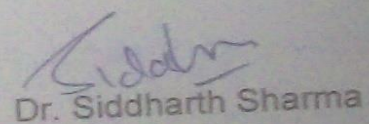 Siddh
Dr. Siddharth Sharma